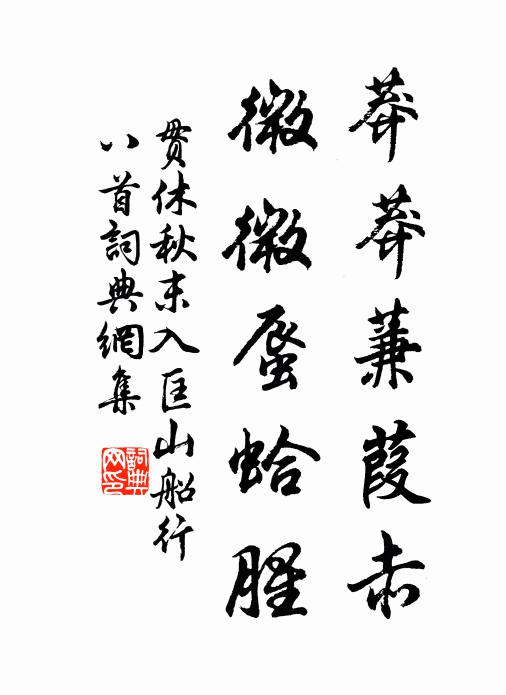 莽莽蒹葭赤
微微蜃蛤腥
貫休秋末入匡山船行
八首詞典網集
詞典网印